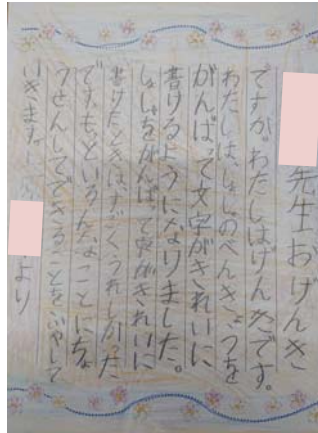 先生おげんき
ですか。わたしはげんきです。
わたしは、しょしのべんきょうを
がんばって文字がきれいに、
書けるようになりました。
しょしゃをがんばって字がきれいに
書けたときは、すごくうれしかった
です。もっといろんなことにちょ
うせんしてできることをふやして
いきます。
より